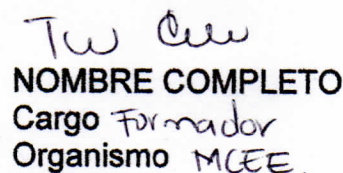 NOMBRE COMPLETO
Cargo Formador
Organismo MCEE.